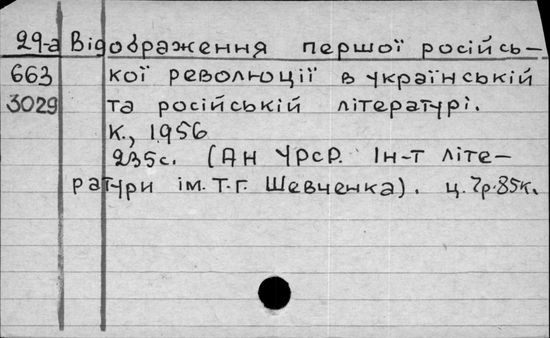 29-а Відображення першої російсь-
663 кої революції в українській
3029 та російській літературі.
К., 1956
235с. (АН УРСР. Ін-т літе-
ратури ім. Т.Г. Шевченка). ц. 7р.85к.